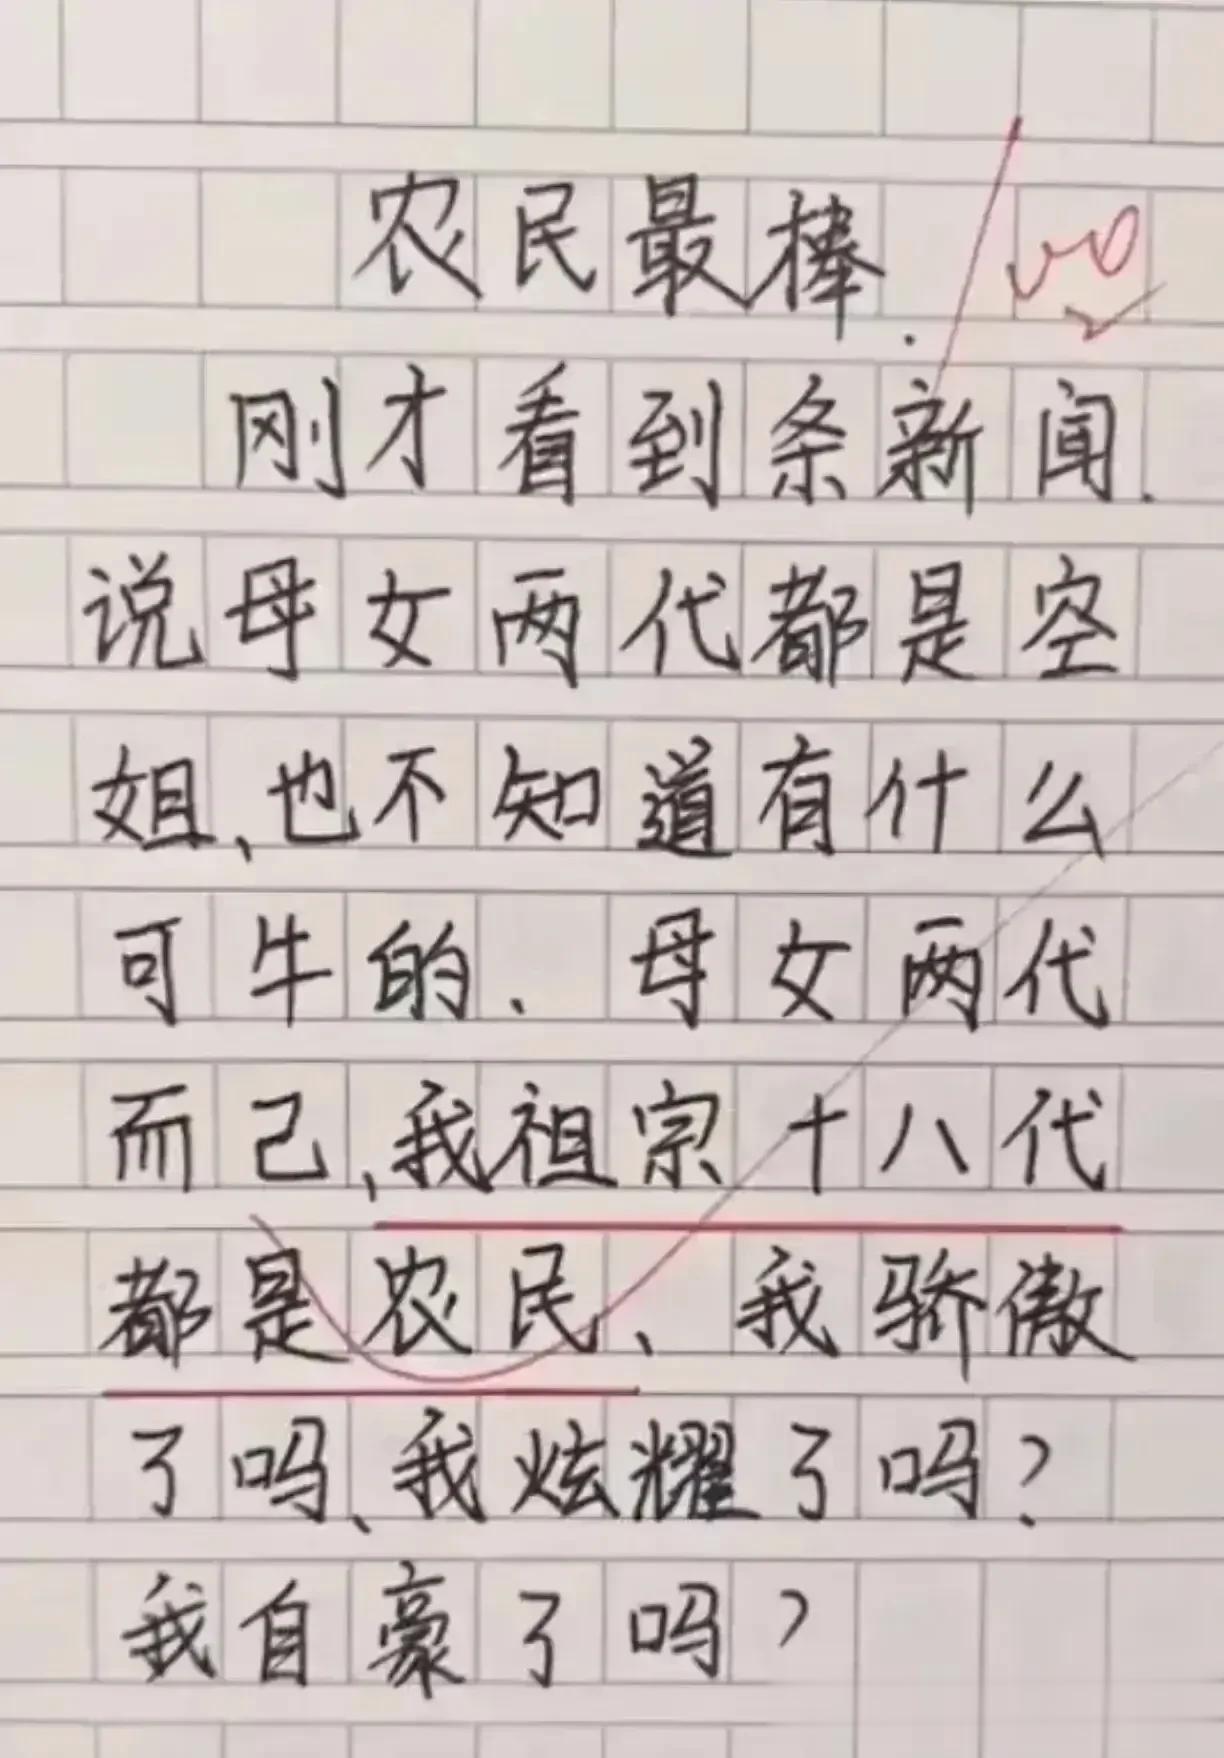 农民最棒.
刚才看到条新闻.
说母女两代都是空
姐、也不知道有什么
可牛的、母女两代
而己、我祖宗十八代
都是农民、我骄傲
了吗、我炫耀了吗?
我自豪了吗?